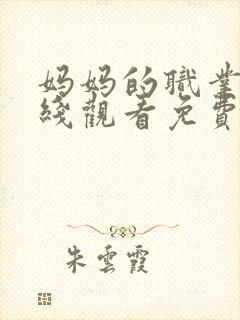 妈妈的職業
綫觀看免費
朱雲霞